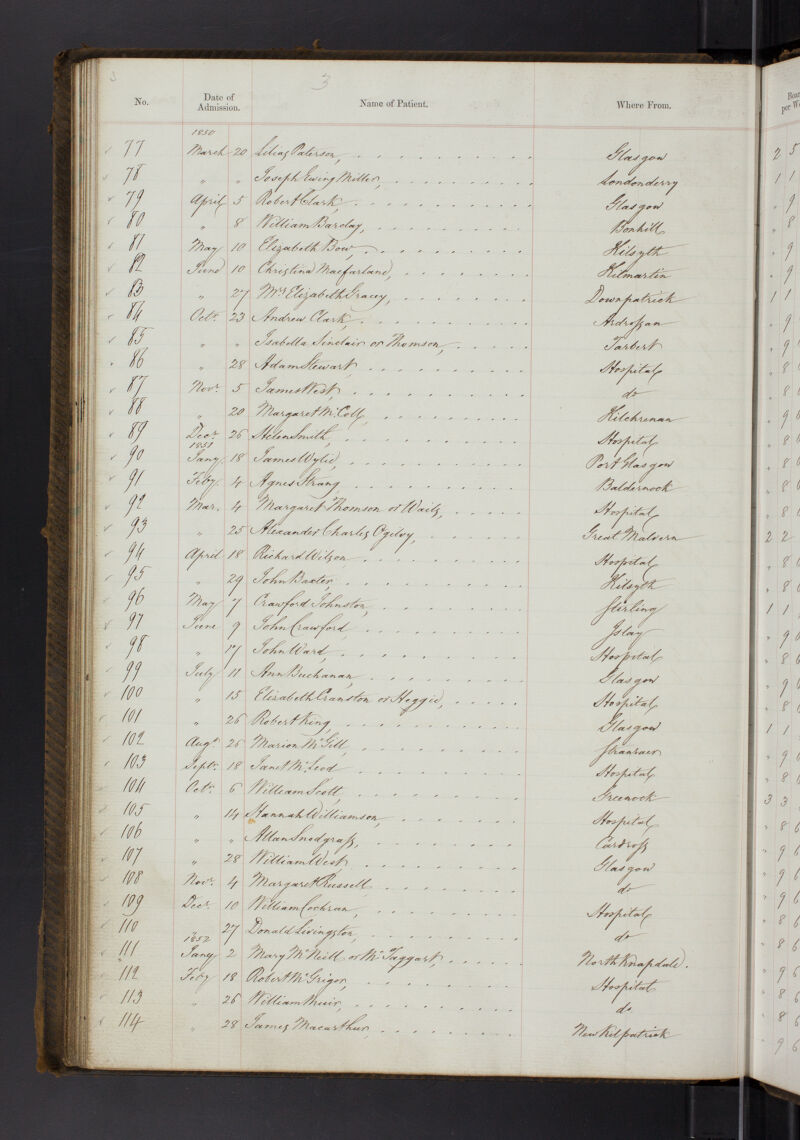 3 3
No. Date of Admission. Name of Patient. Where From. Boar per We
1850
77 March 20 Lilias Paterson, Glasgow 2 5
78 " " Joseph Ewing Miller, Londonderry 1 1
79 April 5 Robert Clark, Glasgow " 9
80 " 8 William Barclay, Bonhill " 8
81 May 10 Elizabeth Bow, Kilsyth " 9
82 June 10 Christina Macfarlane, Kilmartin " 9
83 " 27 Mrs Elizabeth Gracey, Downpatrick 1 1
84 Octr. 23 Andrew Clark, Ardrossan " 9
85 " " Isabella Sinclair or Thomson, Tarbert " 9
86 " 28 Adam Stewart Hospital " 8
87 Novr. 5 James West, do " 8
88 " 20 Margaret McColl, Kilchrenan " 9 6
89 Decr. 26 Helen Smith, Hospital " 8 6
1851
90 Jany 18 James Wylie, Port Glasgow " 8 6
91 Feby 4 Agnes Strang Baldernock " 8 6
92 Mar. 4 Margaret Thomson or Waite, Hospital " 8 6
93 " 25 Alexander Charles Ogilvy, Great Malvern 2 2
94 April 18 Richard Wilson Hospital " 8 6
95 " 29 John Baxter, Kilsyth " 8 6
96 May 7 Crawford Johnston, Stirling 1 1
97 June 9 John Crawford, Islay " 9 6
98 " 17 John Ward, Hospital " 8 6
99 July 11 Ann Buchanan, Glasgow " 9 6
100 " 15 Elizabeth Cranston or Heggie, Hospital " 8 6
101 " 26 Robert King, Glasgow 1 1
102 Augt 26 Marion McGill, Stranraer " 9 6
103 Septr. 18 Janet McLeod Hospital " 8 6
104 Octr. 6 William Scott, Greenock 3 3
105 " 14 Hannah Williamson, Hospital " 8 6
106 " " Allan Snodgrass, Cardross " 9 6
107 " 28 William West, Glasgow " 9 6
108 Novr. 4 Margaret Russell do " 9 6
109 Decr. 10 William Cochran, Hospital " 8 6
110 " 27 Donald Livingston, do " 8 6
1852
111 Jany 2 Mary McNeill or McTaggart, North Knapdale. " 9 6
112 Feby 18 Robert McGrigor, Hospital " 8 6
113 " 26 William Muir, do " 8 6
114 " 28 James Macarthur, New Kilpatrick " 9 6